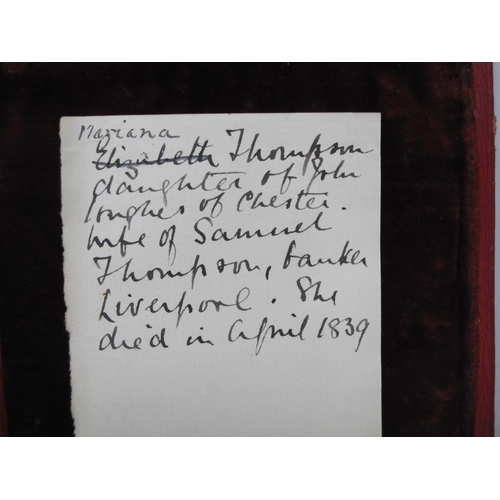 Mariana
Elizabeth Thompson
daughter of John
Hughes of Chester.
Wife of Samuel
Thompson, banker
Liverpool. She
died in April 1839